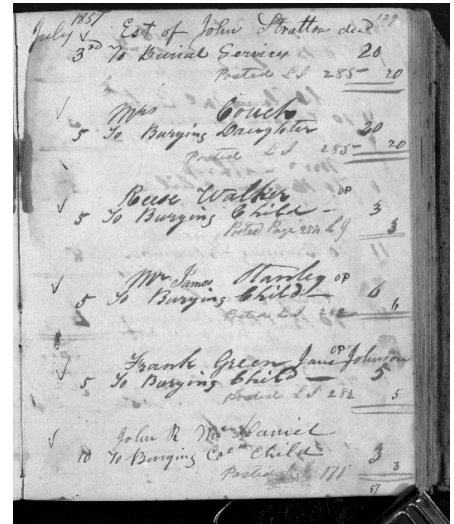 1857 129
July Est of John Stratton decd
3rd To Burial Services 20
Posted LJ 285 20
Mrs Couch
5 To Burying Daughter 20
Posted LJ 285 20
Reese Walker OP
5 To Burying Child 3
Posted Page 254 LJ 3
Mr James Stanley OP
5 To Burying Child 6
Posted LJ 282 6
Frank Green Jane Johnson OP
5 To Burying Child 5
Posted LJ 282 5
John R McDaniel
10 To Burying Cold Child 3
Posted 171 3
57